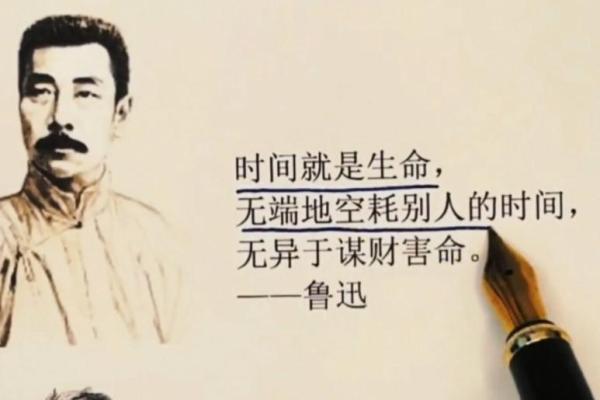 时间就是生命，
无端地空耗别人的时间，
无异于谋财害命。
——鲁迅